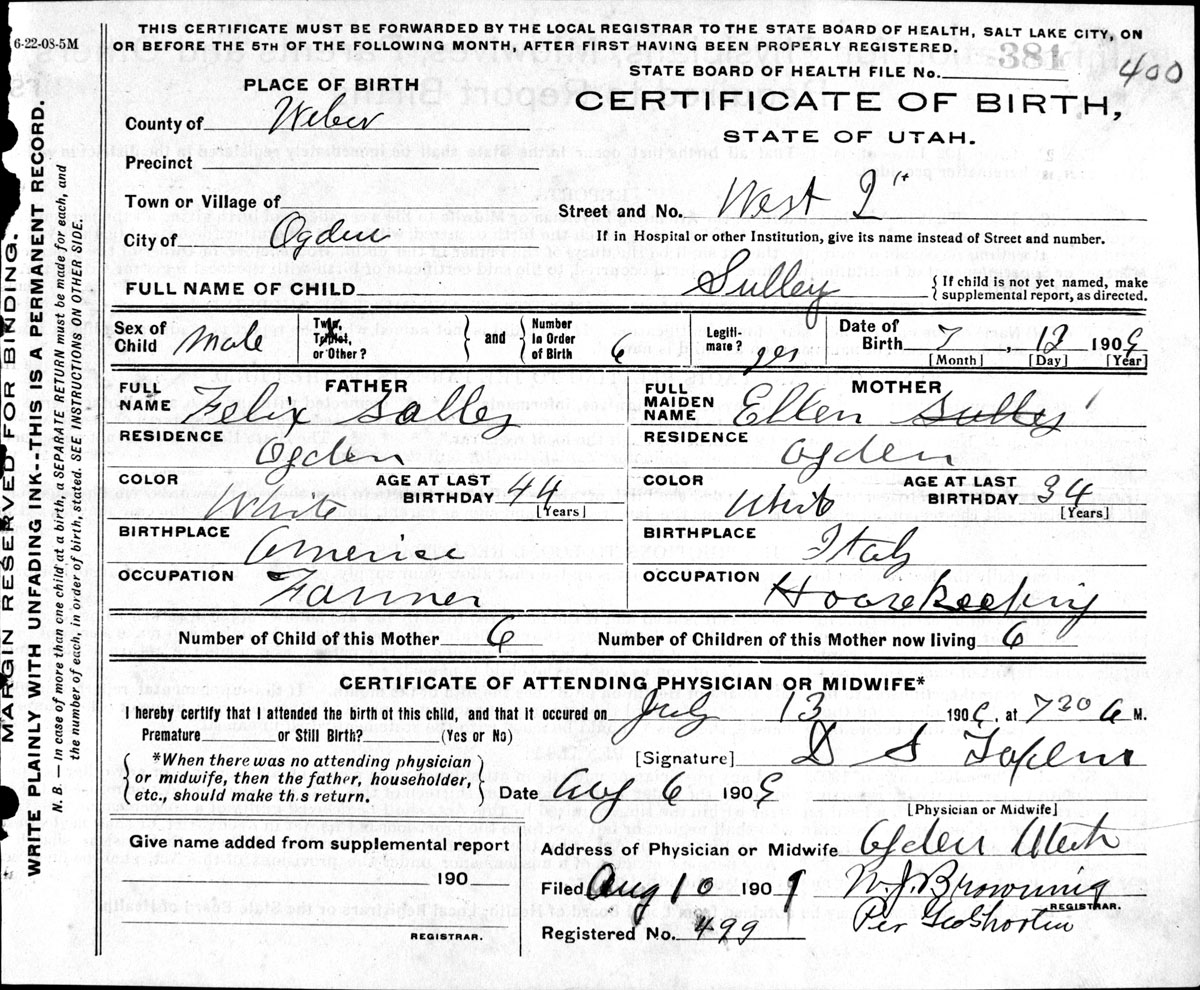 THIS CERTIFICATE MUST BE FORWARDED BY THE LOCAL REGISTRAR TO THE STATE BOARD OF HEALTH, SALT LAKE CITY, ON
OR BEFORE THE 5TH OF THE FOLLOWING MONTH, AFTER FIRST HAVING BEEN PROPERLY REGISTERED.
6-22-08-5M
MARGIN RESERVED FOR BINDING.
WRITE PLAINLY WITH UNFADING INK--THIS IS A PERMANENT RECORD.
N. B. — In case of more than one child at a birth a SEPARATE RETURN must be made for each, and
the number of each, in order of birth, stated. SEE INSTRUCTIONS OTHER SIDE.
STATE BOARD OF HEALTH FILE No. 381 400
PLACE OF BIRTH
CERTIFICATE OF BIRTH,
STATE OF UTAH.
County of Weber
Precinct
Town or Village of
Street and No. West
City of Ogden
If in Hospital or other Institution, give its name instead of Street and number.
FULL NAME OF CHILD Sulley
{ If child is not yet named, make
supplemental report, as directed.
Sex of Child Male
Twin, Triplet, or Other?
and
Number in Order of Birth 6
Legitimate? yes
Date of Birth 7, 12 1909
[Month] [Day] [Year]
FATHER
FULL NAME Felix Salley
RESIDENCE
Ogden
COLOR White
AGE AT LAST BIRTHDAY 44
[Years]
BIRTHPLACE America
OCCUPATION Farmer
MOTHER
FULL MAIDEN NAME Ellen Sulley
RESIDENCE
Ogden
COLOR White
AGE AT LAST BIRTHDAY 34
[Years]
BIRTHPLACE Italy
OCCUPATION Housekeeping
Number of Child of this Mother 6 Number of Children of this Mother now living 6
CERTIFICATE OF ATTENDING PHYSICIAN OR MIDWIFE*
I hereby certify that I attended the birth of this child, and that it occured on July 13 1909, at 7 30 a M.
Premature or Still Birth? (Yes or No)
[Signature] D S
*When there was no attending physician
or midwife, then the father, householder,
etc., should make this return.
Date Aug 6 1909
[Physician or Midwife]
Give name added from supplemental report
190
REGISTRAR.
Address of Physician or Midwife Ogden Utah
Filed Aug 10 1909 W. J. Browning
REGISTRAR.
Registered No. 499 Per